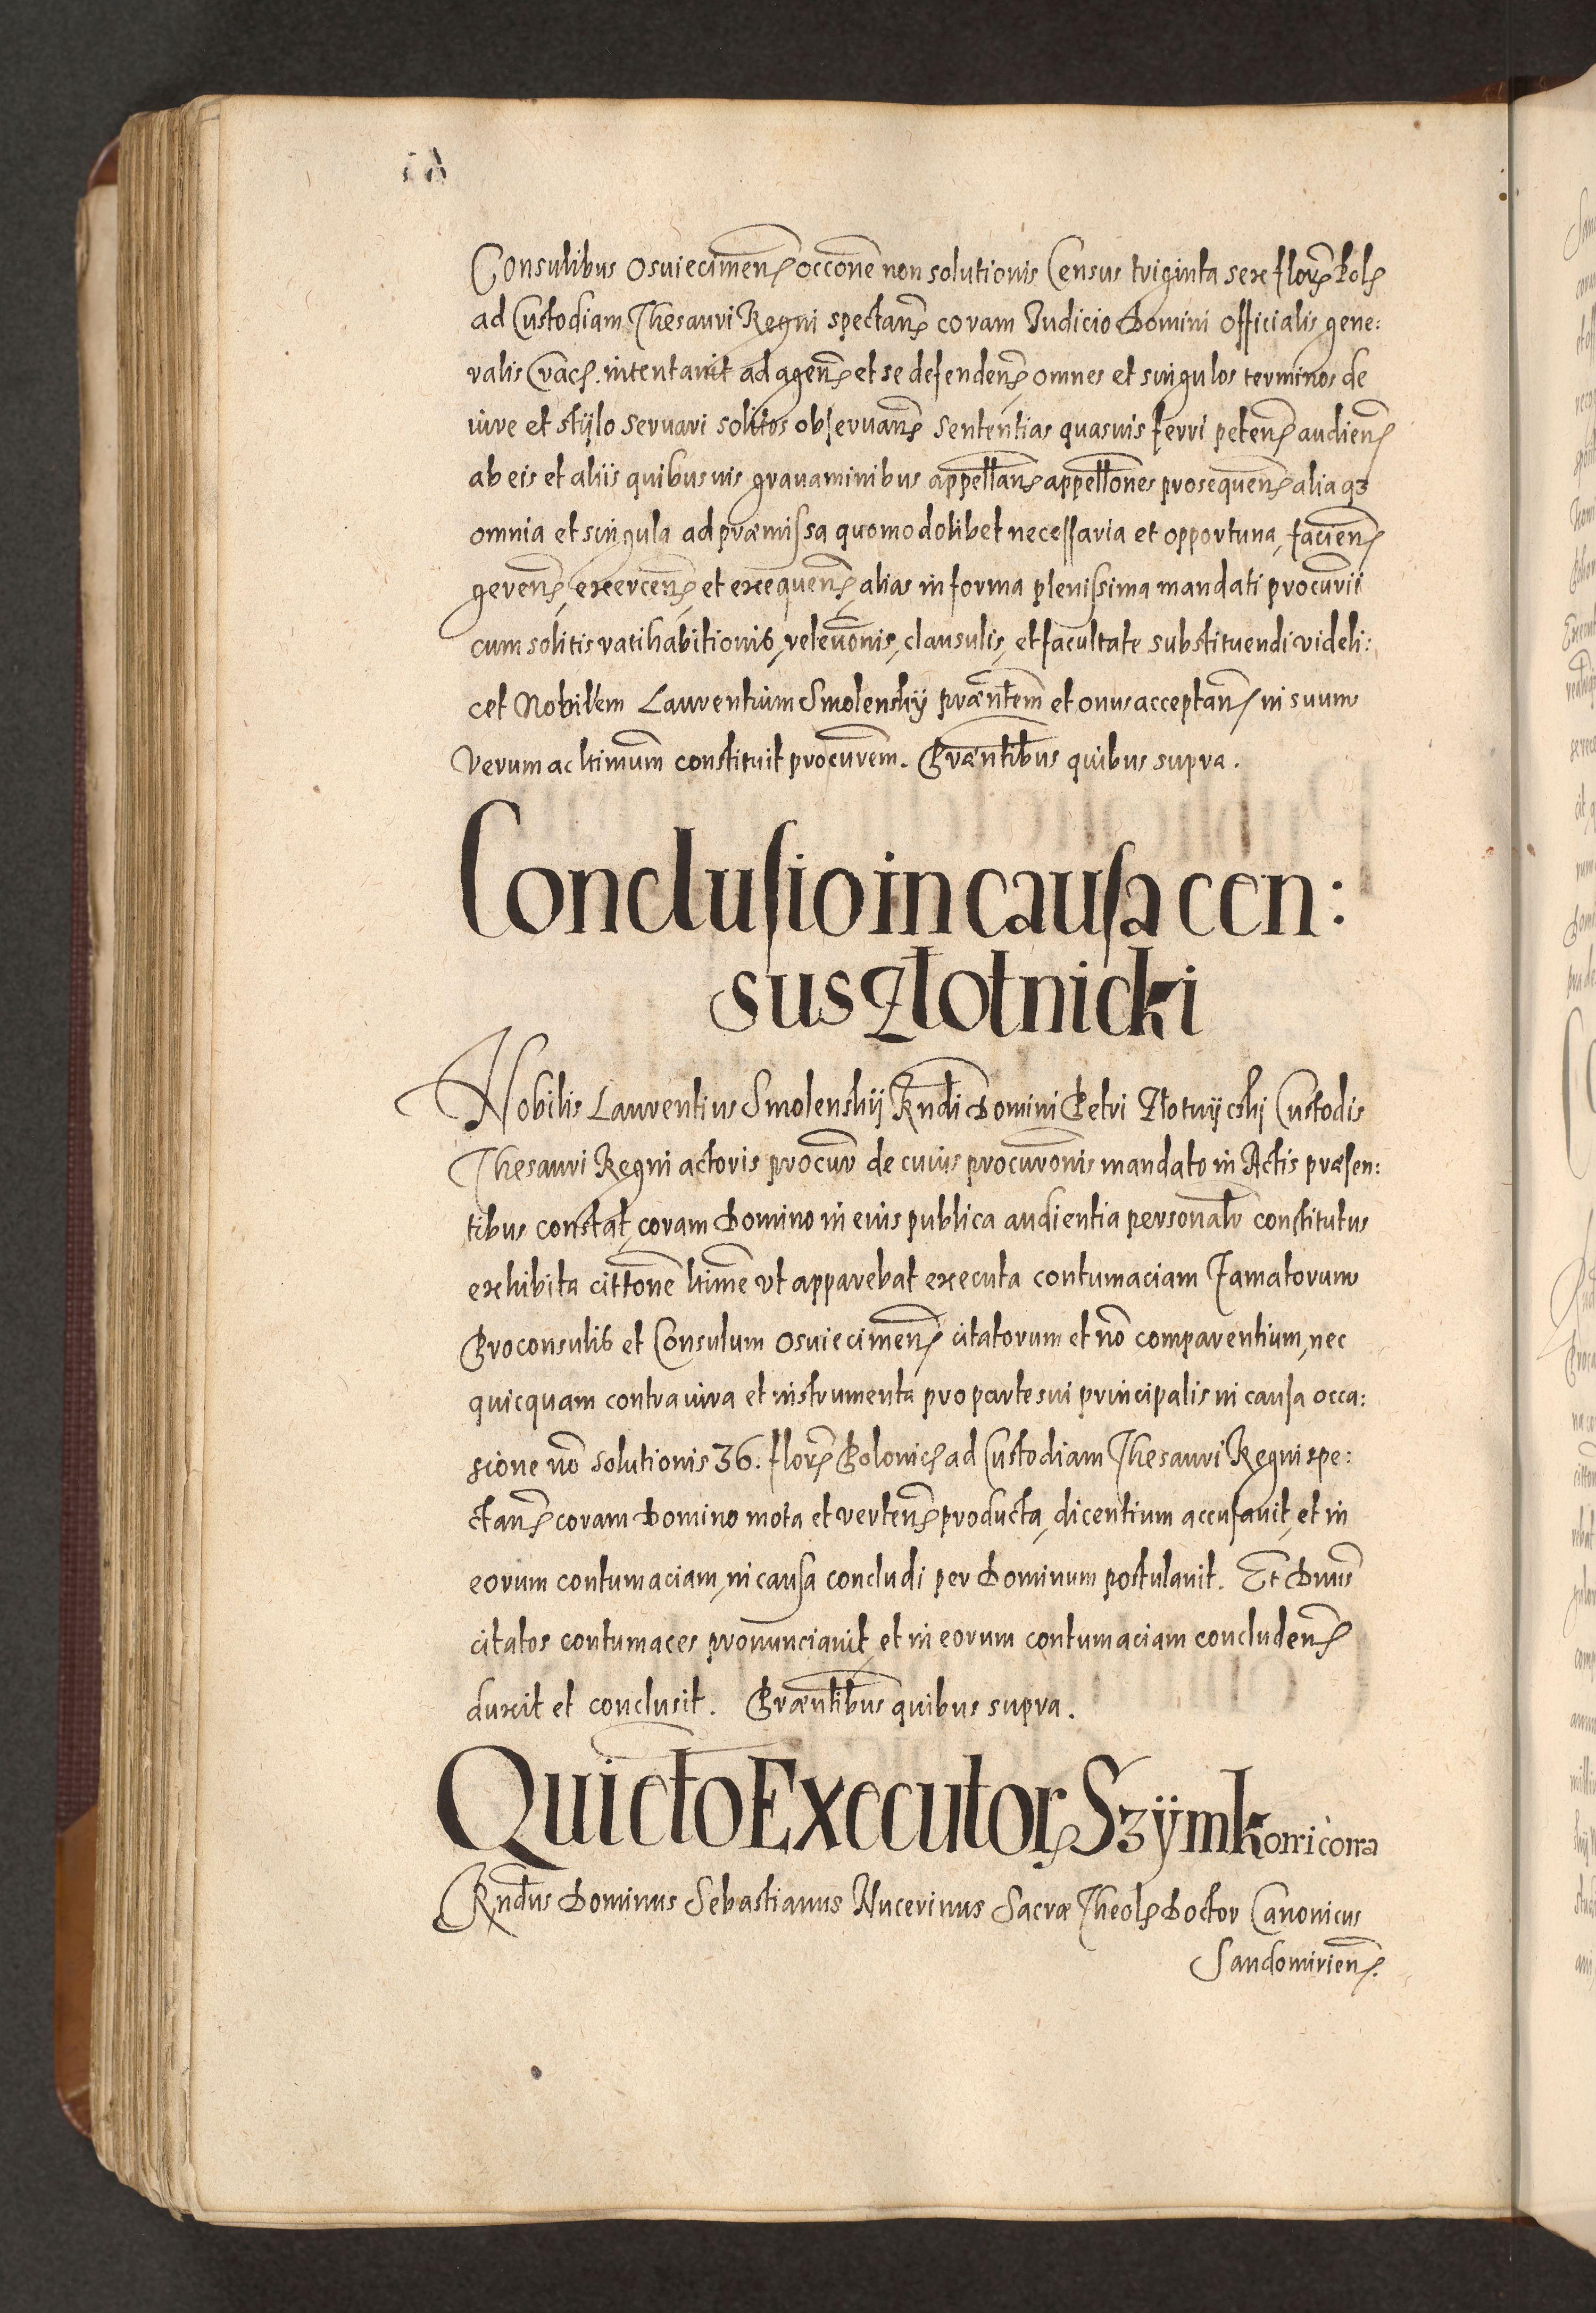 Consulibus Osuiecimen̄ occōne non solutionis Census triginta sex flor̄ Pol
ad Custodiam Thesauri Regni spectan̄ coram Iudicio Domini Officialis gene:
ralis Crac. intentauit ad agen̄ et se defenden̄ omnes et singulos terminos de
iure et stÿlo seruari solitos obseruan̄ sententias quasuis ferri peten̄ audien̄
ab eis et aliis quibusuis grauaminibus appellan̄ appellōnes prosequen̄ aliaqȝ
omnia et singula ad præmissa quomodolibet necessaria et opportuna, facien̄
geren̄, exercen̄, et exequen̄, alias in forma plenissima mandati procurii
cum solitis ratihabitionis, releuōnis, clausulis, et facultate substituendi videli:
cet Nobilem Laurentium Smolenskÿ præntem et onus acceptan̄ in suum
verum ac ltimum constituit procurem. Præntibus quibus supra.
Conclusio in causa cen:
sus Złotnicki
Nobilis Laurentius Smolenskÿ Rndi Domini Petri Złotnÿcskÿ Custodis
Thesauri Regni actoris procur de cuius procurōnis mandato in Actis præsen:
tibus constat, coram Domino in eius publica audientia personalr constitutus
exhibita cittōne ltime vt apparebat executa contumaciam Famatorum
Proconsulis et Consulum Osuiecimen̄ citatorum et nō comparentium, nec
quicquam contra iura et instrumenta pro parte sui principalis in causa occa:
sione nō solutionis 36. flor̄ Polonic ad Custodiam Thesauri Regni spe:
ctan̄ coram Domino mota et verten̄ producta, dicentium accusauit, et in
eorum contumaciam, in causa concludi per Dominum postulauit. Et Dnus
citatos contumaces pronunciauit, et in eorum contumaciam concluden̄
duxit et conclusit. Præntibus quibus supra.
Quictō Executor Szÿmkorricorra
Rndus Dominus Sebastianus Nucerinus Sacræ Theol Doctor Canonicus
Sandomirien̄.